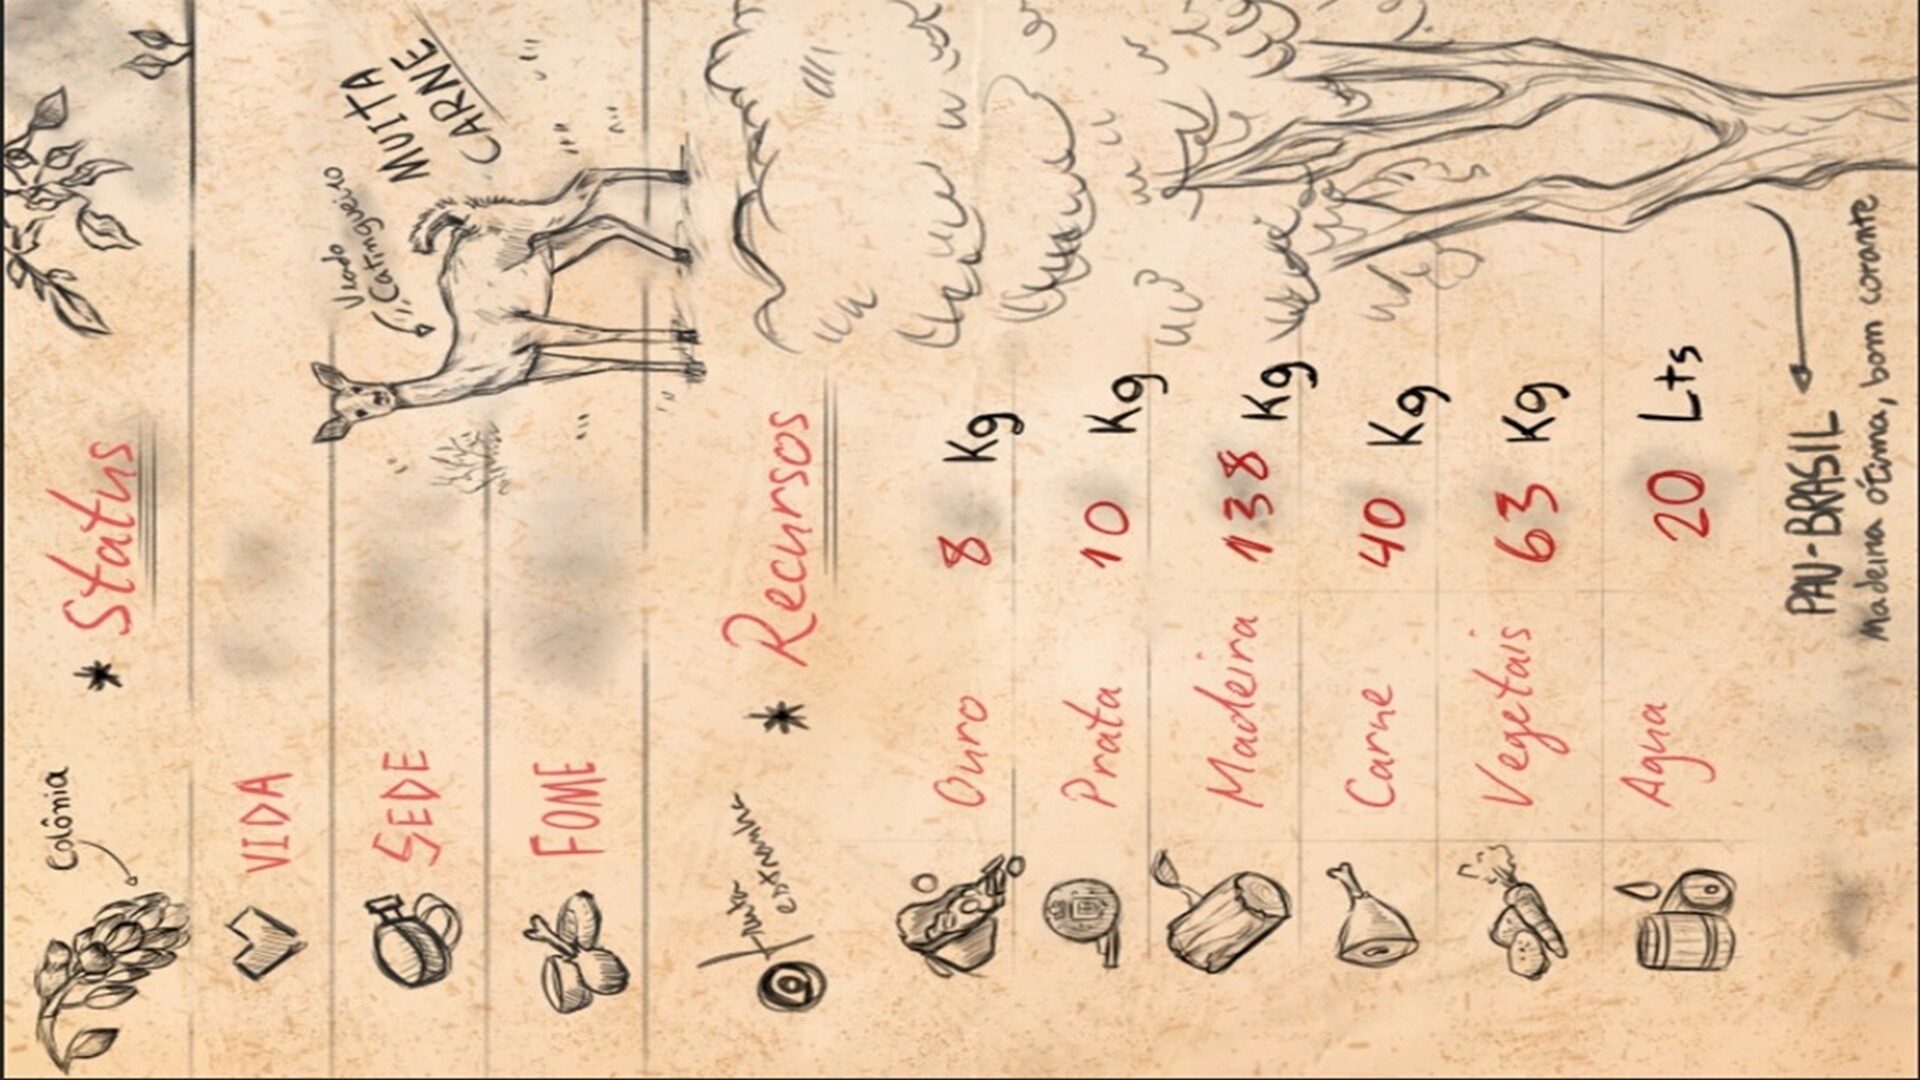 Colônia
* Status
Viado
Catingueiro
MUITA
CARNE
VIDA
SEDE
FOME
* Recursos
fruto
extranho
Ouro 8 Kg
Prata 10 Kg
Madeira 138 Kg
Carne 40 Kg
Vegetais 63 Kg
Agua 20 Lts
PAU-BRASIL
Madeira ótima, bom corante